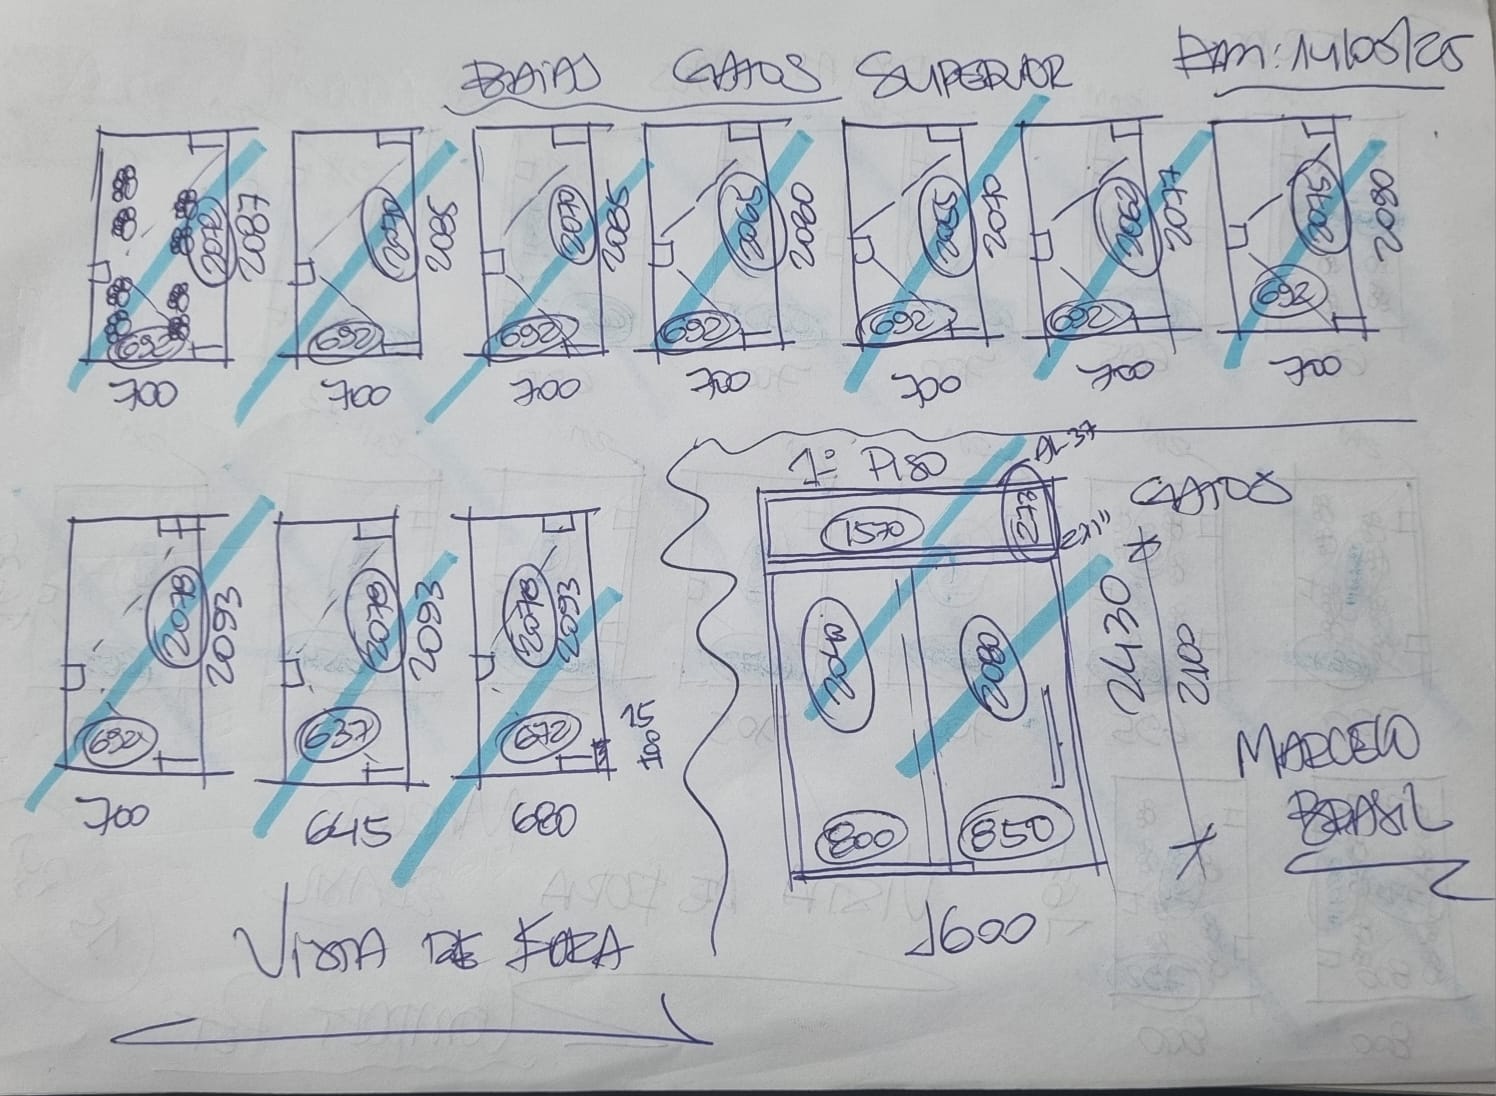 BAIAS GATOS SUPERIOR
14/05/25
2072 2087 692 700
2070 2085 692 700
2070 2085 692 700
2065 2080 692 700
2055 2070 692 700
2062 2077 692 700
2065 2080 692 700
2078 2093 692 700
2078 2093 637 645
2078 2093 672 680
15
100
VISTA DE FORA
1º PISO
GATOS
AL-37
1570
273
2x1"
2040
2080
2430
2100
800
850
1600
MARCELO
BRASIL